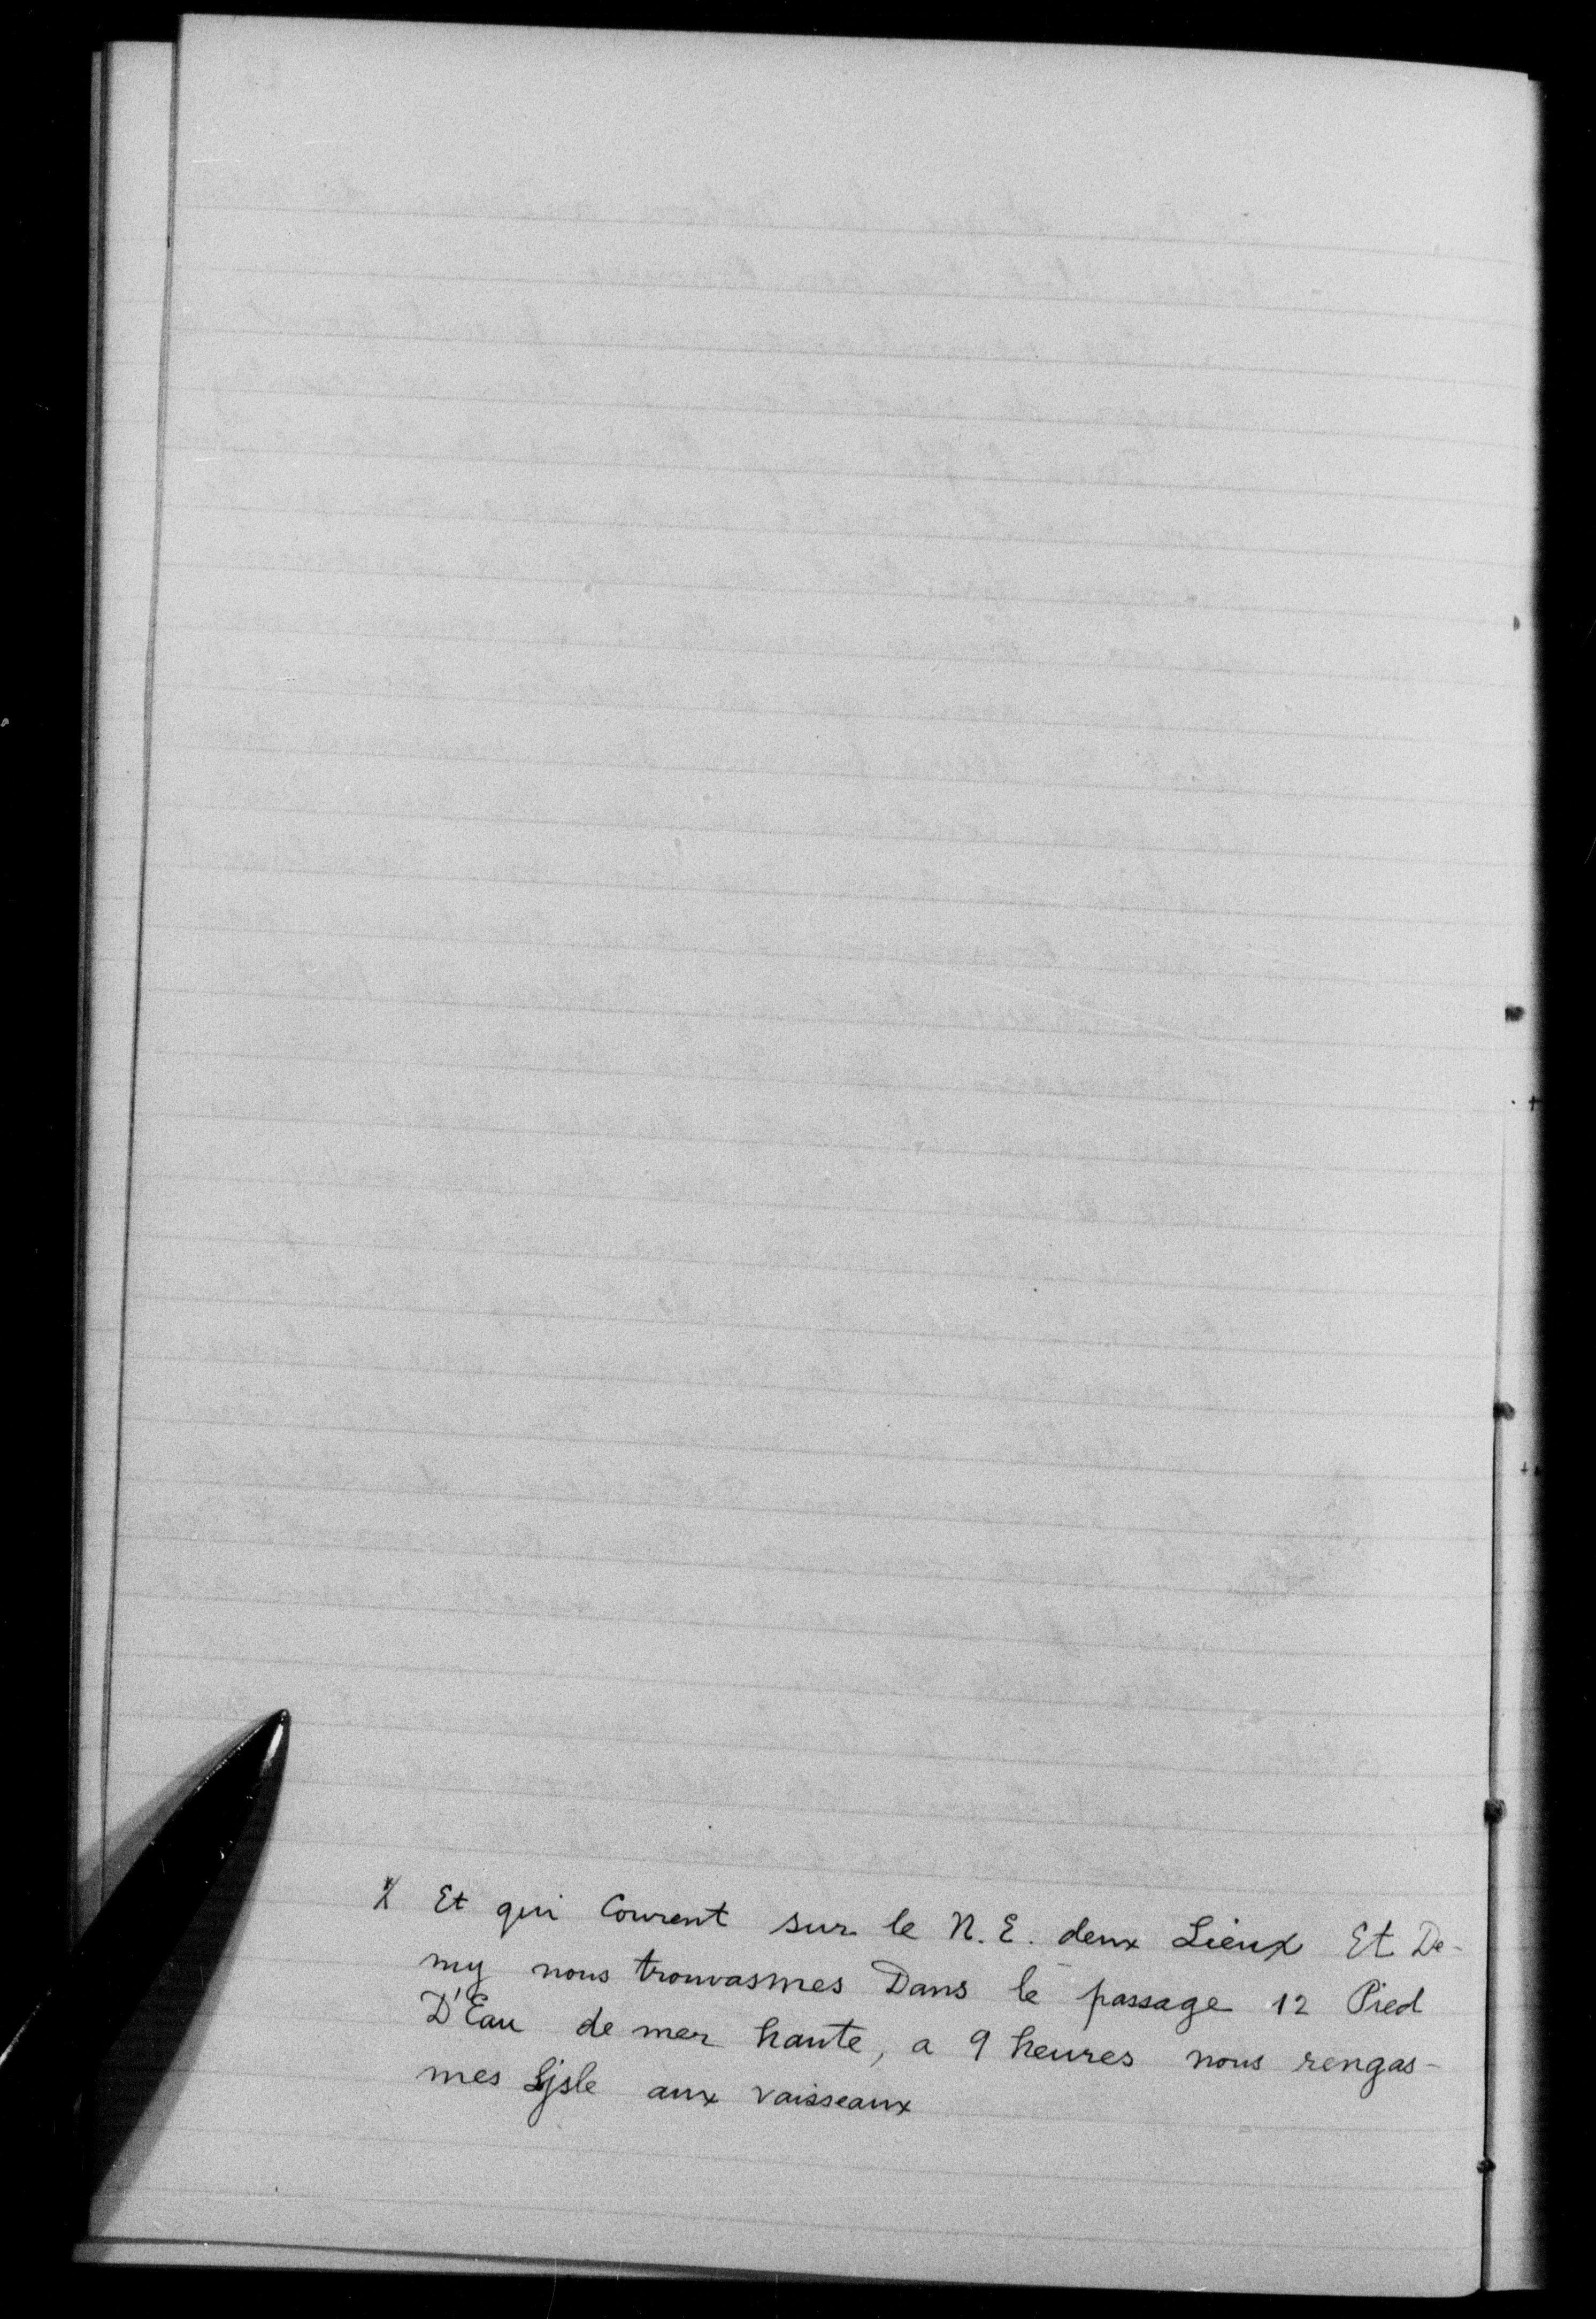 X Et qui Courent sur le N. E. deux Lieux Et De-
my nous trouvasmes Dans le passage 12 Pied
D'Eau de mer haute, a 9 heures nous rengas-
mes Ljsle aux vaisseaux